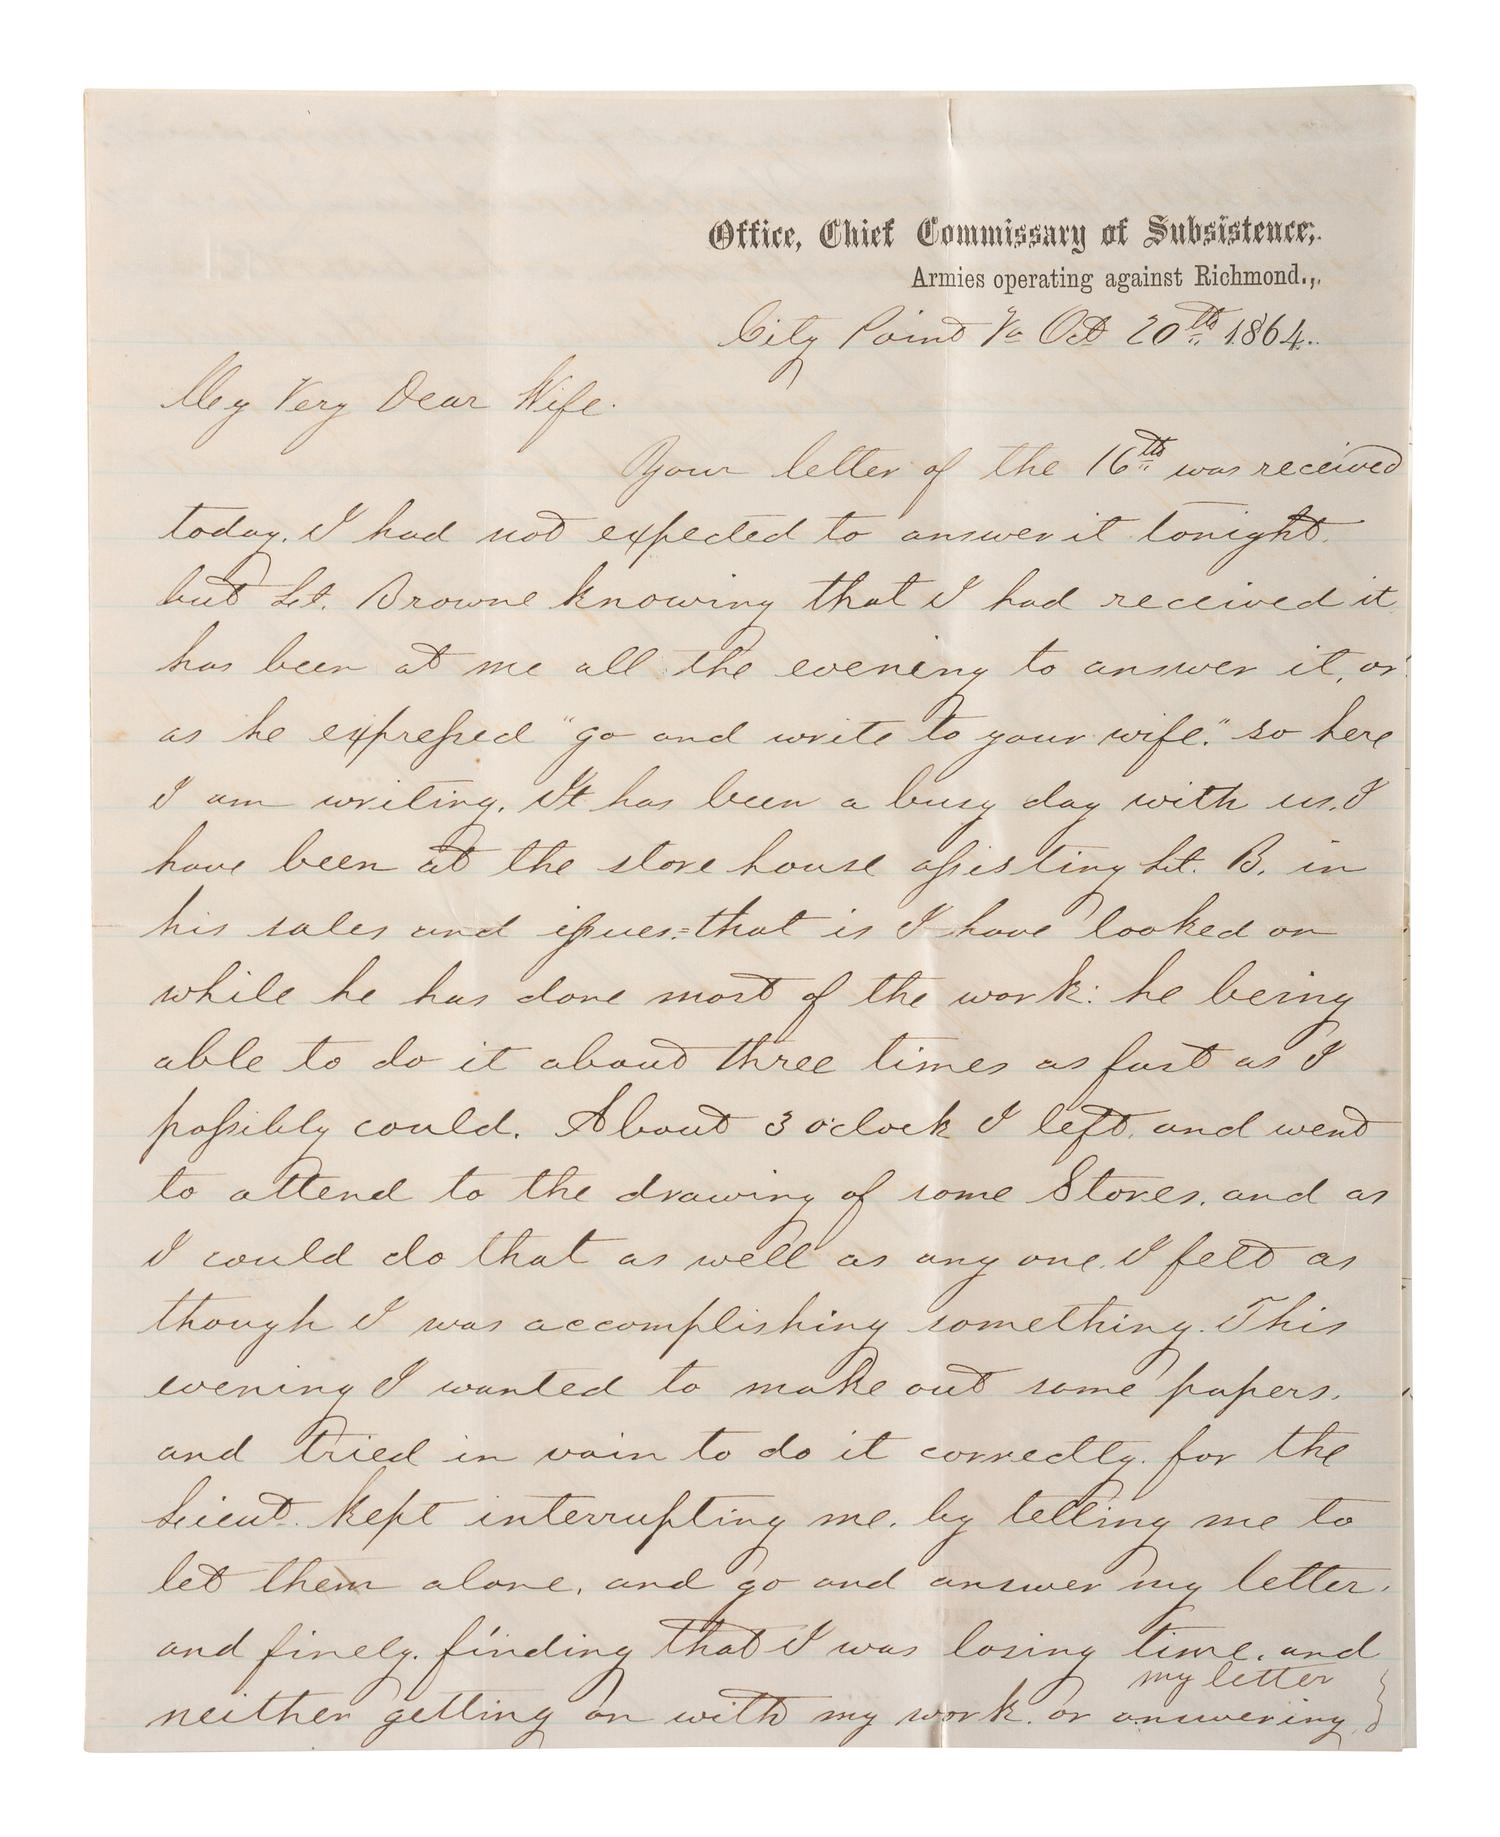 Office, Chief Commissary of Subsistence,
Armies operating against Richmond.,
City Point Va Oct 20th 1864.
My Very Dear Wife.
Your letter of the 16th was received
today. I had not expected to answer it tonight.
but Lt. Browne knowing that I had received it
has been at me all the evening to answer it, or
as he expressed "go and write to your wife." so here
I am writing. It has been a busy day with us. I
have been at the store house assisting Lt. B. in
his sales and issues:=that is I have looked on
while he has done most of the work: he being
able to do it about three times as fast as I
possibly could. About 3 o'clock I left, and went
to attend to the drawing of some Stores. and as
I could do that as well as any one. I felt as
though I was accomplishing something. This
evening I wanted to make out some papers.
and tried in vain to do it correctly. for the
Lieut. kept interrupting me. by telling me to
let them alone. and go and answer my letter.
and finely. finding that I was losing time. and
my letter
neither getting on with my work. or answering